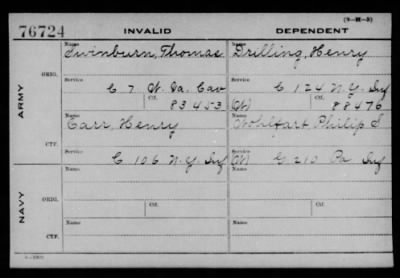 (3-M-5)
76724 INVALID DEPENDENT
Name Name
Swinburn, Thomas Drilling, Henry
ARMY
ORIG.
Service Service
C 7 W. Va. Cav C 124 N.Y. Inf
Ctf. Ctf.
83453 (W) 88476
Name Name
Carr, Henry Wohlfart Philip S
CTF.
Service Service
C 106 N.Y. Inf (W) G 210 Pa Inf
NAVY
ORIG.
Name Name
CTF.
Name Name